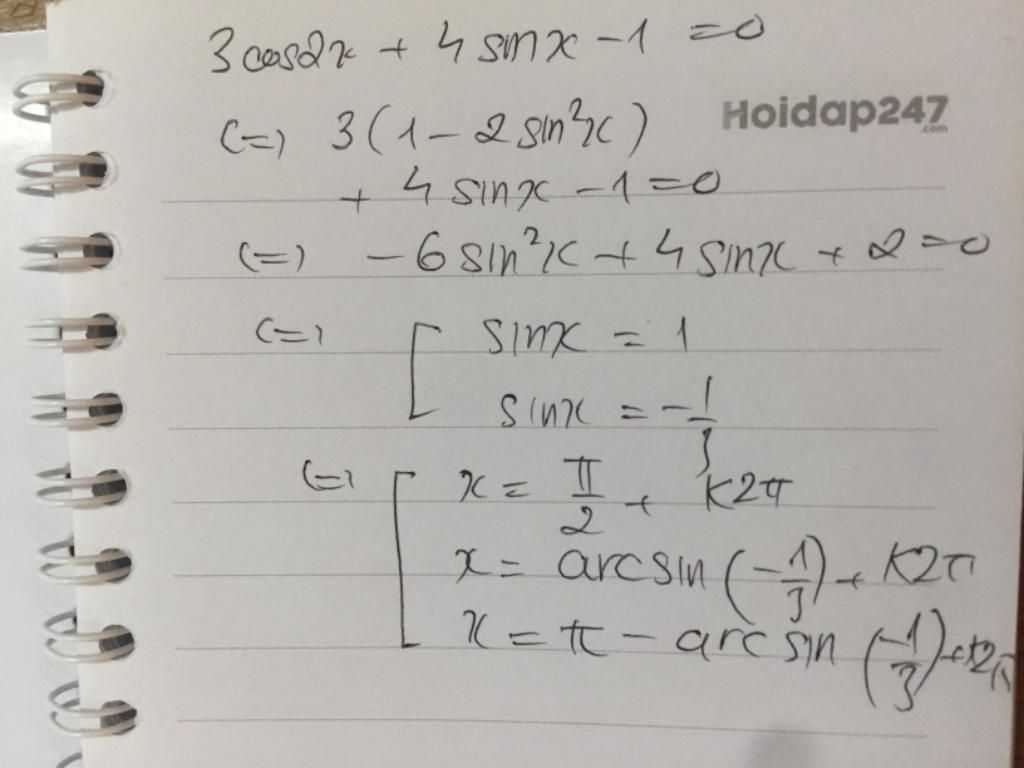 3cos2x + 4sinx - 1 = 0
Hoidap247
.com
(=) 3(1 - 2sin²x)
+ 4sinx - 1 = 0
(=) -6sin²x + 4sinx + 2 = 0
(=) [ sinx = 1
sinx = -1/3
(=) [ x = π/2 + k2π
x = arcsin(-1/3) + k2π
x = π - arcsin(-1/3) + k2π